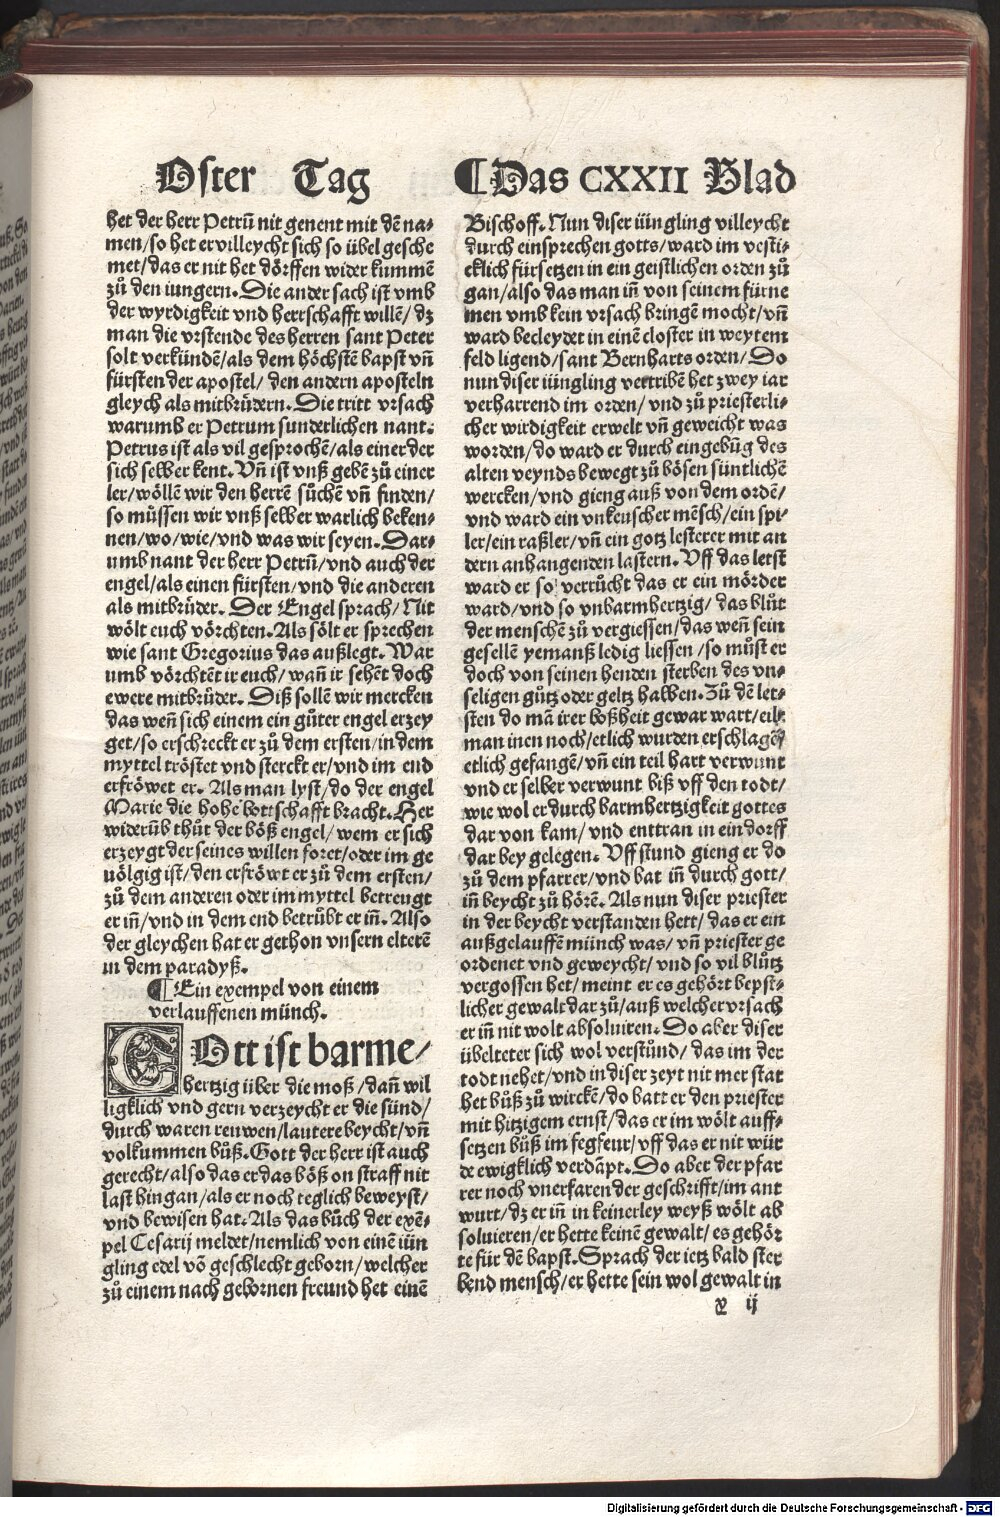 Oster Tag ¶Das CXXII Blad
het der herr Petrū nit genent mit dē na-
men/so het er villeycht sich so übel gesche
met/das er nit het dörffen wider kummē
zů den iungern. Die ander sach ist vmb
der wyrdigkeit vnd herrschafft willē/ dz
man die vrstende des herren sant Peter
solt verkündē/als dem höchstē bapst vn̄
fürsten der apostel/ den andern aposteln
gleych als mitbrůdern. Die tritt vrsach
warumb er Petrum sunderlichen nant.
Petrus ist als vil gesprochē/als einer der
sich selber kent. Vn̄ ist vnß gebē zů einer
ler/wöllē wir den herrē sůchē vn̄ finden/
so můssen wir vnß selber warlich beken-
nen/wo/wie/vnd was wir seyen. Dar-
umb nant der herr Petrū/vnd auch der
engel/als einen fürsten/vnd die anderen
als mitbrůder. Der Engel sprach/ Nit
wölt euch vörchten. Als sölt er sprechen
wie sant Gregorius das außlegt. War
umb vörchtēt ir euch/ wan̄ ir sehēt doch
ewere mitbrůder. Diß sollē wir mercken
das wen̄ sich einem ein gůter engel erzey
get/so erschreckt er zů dem ersten/in dem
myttel tröstet vnd sterckt er/vnd im end
erfröwet er. Als man lyst/do der engel
Marie die hohe bottschafft bracht. Her
widerūb thůt der böß engel/wem er sich
erzeygt der seines willen foret/oder im ge
uölgig ist/den erfröwt er zů dem ersten/
zů dem anderen oder im myttel betreugt
er in̄/vnd in dem end betrůbt er in̄. Also
der gleychen hat er gethon vnsern elterē
in dem paradyß.
¶Ein exempel von einem
verlauffenen münch.
GOtt ist barme/
hertzig über die moß/dan̄ wil
ligklich vnd gern verzeycht er die sünd/
durch waren reuwen/lautere beycht/vn̄
volkummen bůß. Gott der herr ist auch
gerecht/also das er das böß on straff nit
last hingan/als er noch teglich beweyst/
vnd bewisen hat. Als das bůch der exē-
pel Cesarij meldet/nemlich von einē iün
gling edel vō geschlecht geborn/welcher
zů einem nach gebornen freund het einē
Bischoff. Nun diser iüngling villeycht
durch einsprechen gotts/ward im vesti-
cklich fürsetzen in ein geistlichen orden zů
gan/also das man in̄ von seinem fürne
men vmb kein vrsach bringē mocht/vn̄
ward becleydet in einē closter in weytem
feld ligend/sant Bernharts orden/ Do
nun diser iüngling vertribē het zwey iar
verharrend im orden/ vnd zů priesterli-
cher wirdigkeit erwelt vn̄ geweicht was
worden/do ward er durch eingebūg des
alten veynds bewegt zů bösen süntlichē
wercken/vnd gieng auß von dem ordē/
vnd ward ein vnkeuscher mēsch/ein spi-
ler/ein raßler/vn̄ ein gotz lesterer mit an
dern anhangenden lastern. Vff das letst
ward er so verrůcht das er ein mörder
ward/vnd so vnbarmhertzig/ das blůt
der menschē zů vergiessen/das wen̄ sein
gesellē yemanß ledig liessen/so můst er
doch von seinen henden sterben des vn-
seligen gůtz oder geltz halben. Zů dē let-
sten do mā irer boßheit gewar wart/eilt
man inen noch/etlich wurden erschlagē
etlich gefangē/vn̄ ein teil hart verwunt
vnd er selber verwunt biß vff den todt/
wie wol er durch barmhertzigkeit gottes
dar von kam/ vnd enttran in ein dorff
dar bey gelegen. Vff stund gieng er do
zů dem pfarrer/vnd bat in̄ durch gott/
in̄ beycht zů hörē. Als nun diser priester
in der beycht verstanden hett/das er ein
außgelauffē münch was/ vn̄ priester ge
ordenet vnd geweycht/ vnd so vil blůtz
vergossen het/ meint er es gehört bepst-
licher gewalt dar zů/auß welcher vrsach
er in̄ nit wolt absoluiren. Do aber diser
übelteter sich wol verstůnd/ das im der
todt nehet/vnd in diser zeyt nit mer stat
het bůß zů wirckē/do batt er den priester
mit hitzigem ernst/das er im wölt auff-
setzen bůß im fegfeur/vff das er nit wür
de ewigklich verdāpt. Do aber der pfar
rer noch vnerfaren der geschrifft/im ant
wurt/dz er in̄ in keinerley weyß wölt ab
soluieren/er hette keinē gewalt/es gehör
te für dē bapst. Sprach der ietz bald ster
bend mensch/er hette sein wol gewalt in
x ij
Digitalisierung gefördert durch die Deutsche Forschungsgemeinschaft - DFG